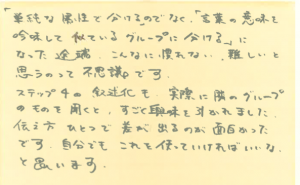 「単純な属性で分ける」のでなく、「言葉の意味を
吟味して似ているグループに分ける」に
なった途端、こんなに慣れない、難しいと
思うのって不思議です。
ステップ4の叙述化も、実際に隣のグループ
のものを聞くと、すごく興味を引かれました。
伝え方ひとつで差が出るのが面白かった
です。自分でもこれを使っていければいいな、
と思います。